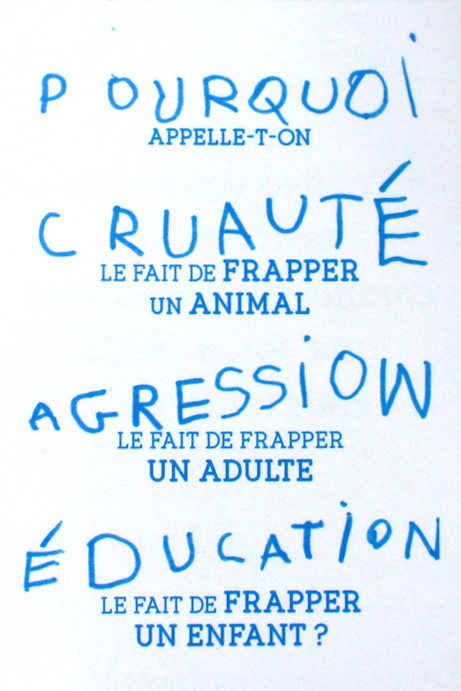 POURQUOI
APPELLE-T-ON
CRUAUTÉ
LE FAIT DE FRAPPER
UN ANIMAL
AGRESSION
LE FAIT DE FRAPPER
UN ADULTE
ÉDUCATION
LE FAIT DE FRAPPER
UN ENFANT ?